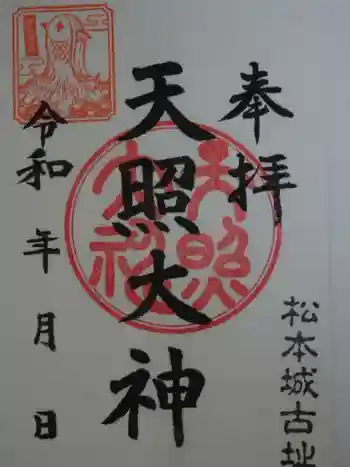 奉拝
松本城古址
天照大神
天照
令和 年 月 日